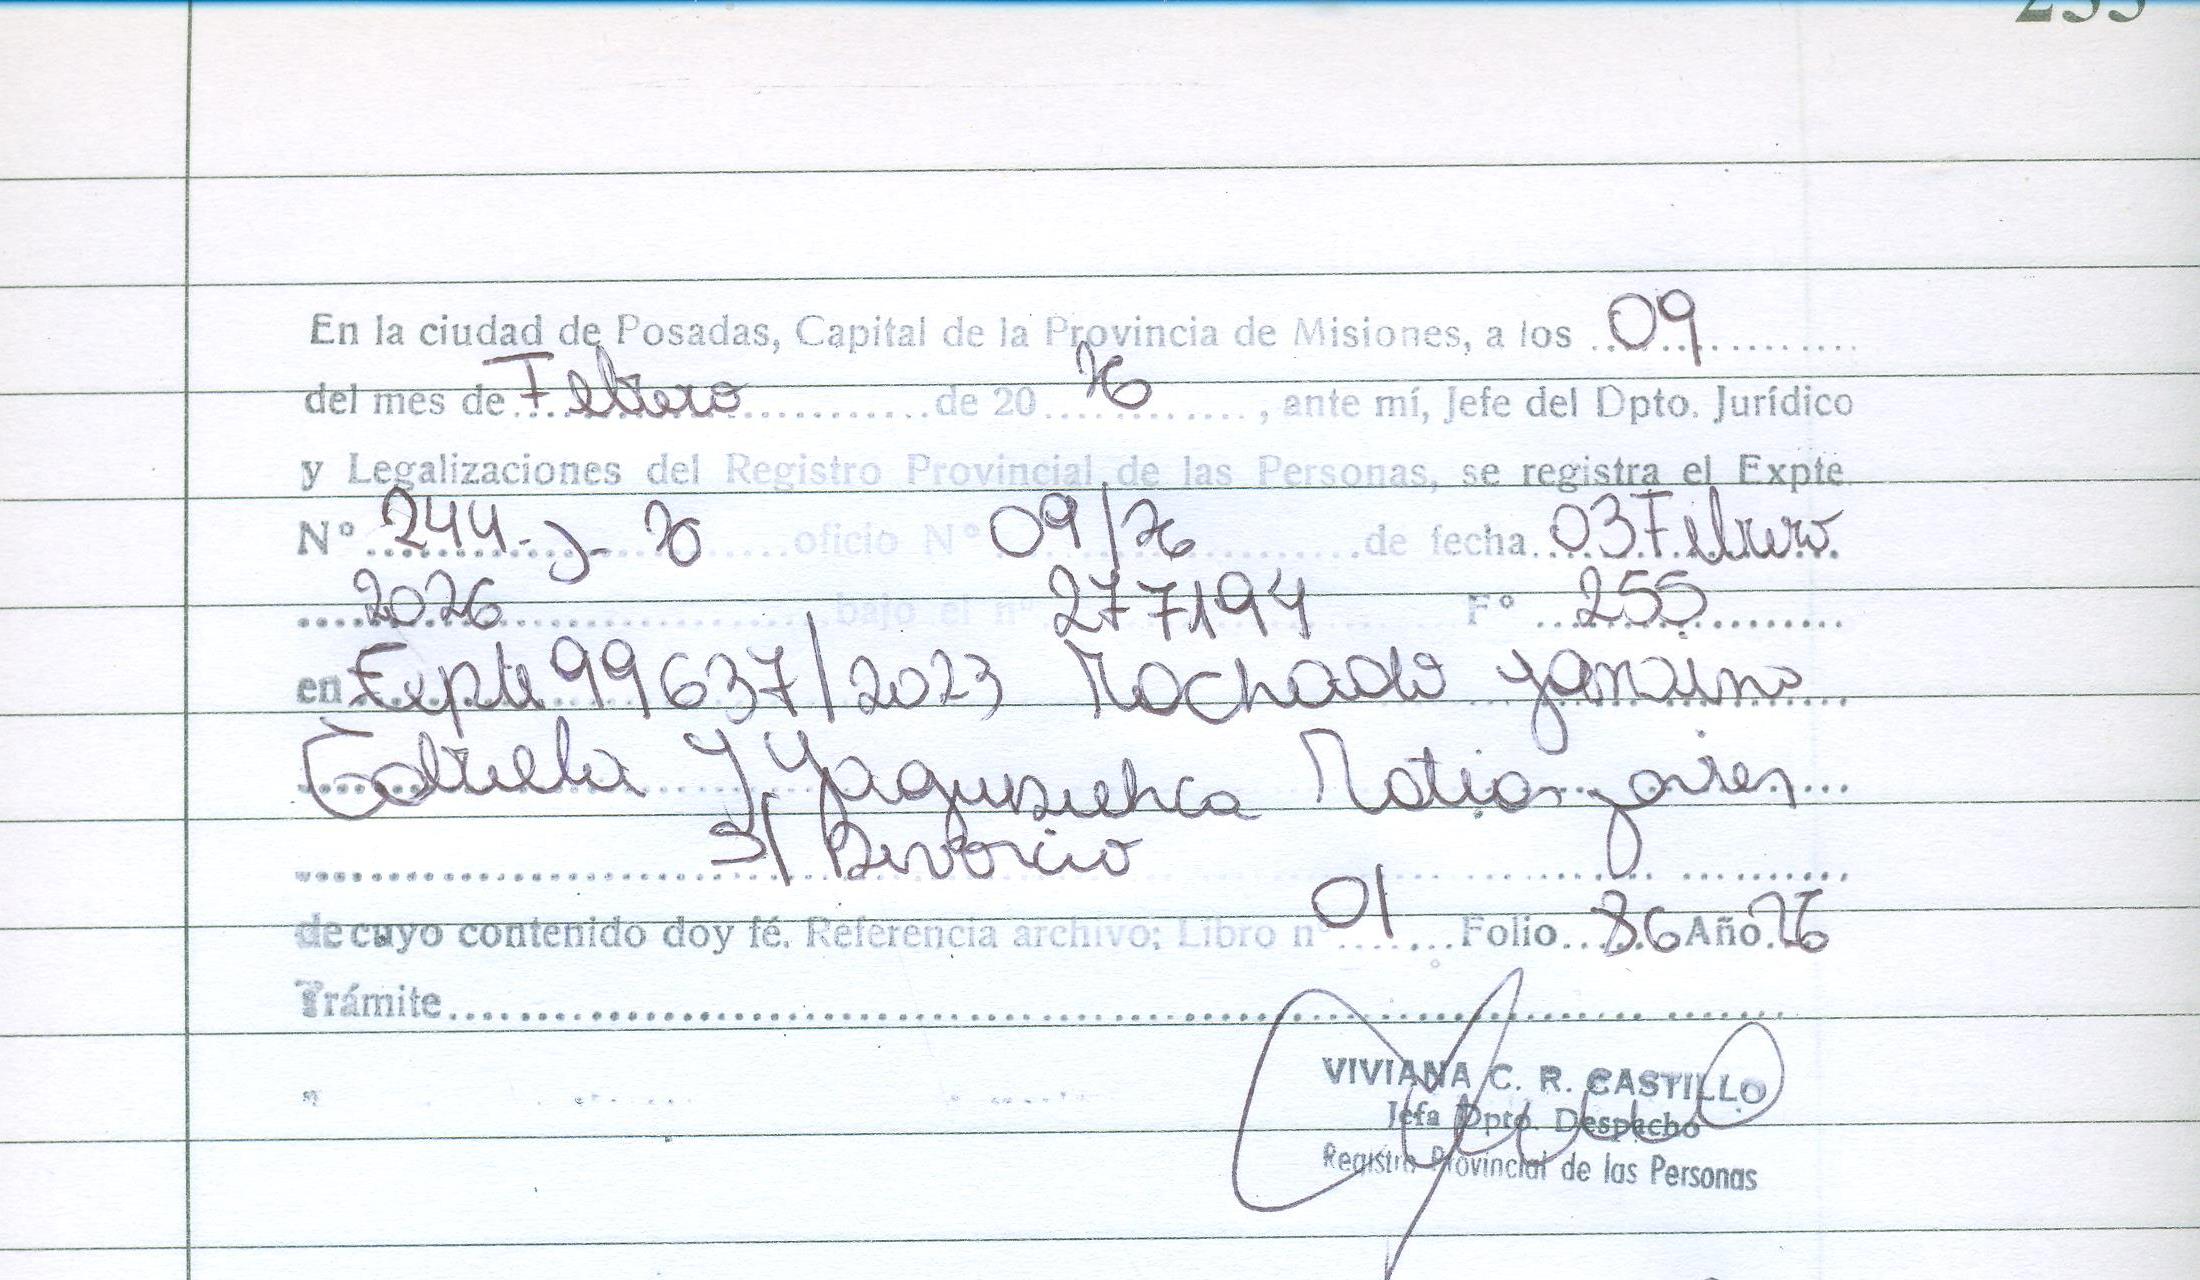 255
En la ciudad de Posadas, Capital de la Provincia de Misiones, a los 09
del mes de Febrero de 20 26, ante mí, Jefe del Dpto. Jurídico
y Legalizaciones del Registro Provincial de las Personas, se registra el Expte.
Nº 244-J- 26 oficio Nº 09/26 de fecha 03 Febrero
2026 bajo el nº 277194 Fº 255
en Expte 99637/2023 Machado Yanina
Gabriela y Matias
S/ Divorcio
de cuyo contenido doy fé. Referencia archivo: Libro nº 01 Folio 86 Año 26
Trámite
VIVIANA C. R. CASTILLO
Jefa Dpto. Despacho
Registro Provincial de las Personas